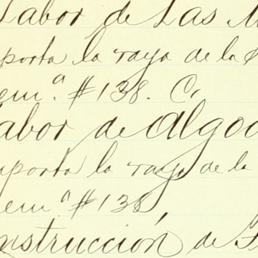 Labor de Las M
mporta la raya de la
em.ª #138. C,
Labor de Algod
mporta la raya de la
em.ª #138,
onstrucción de